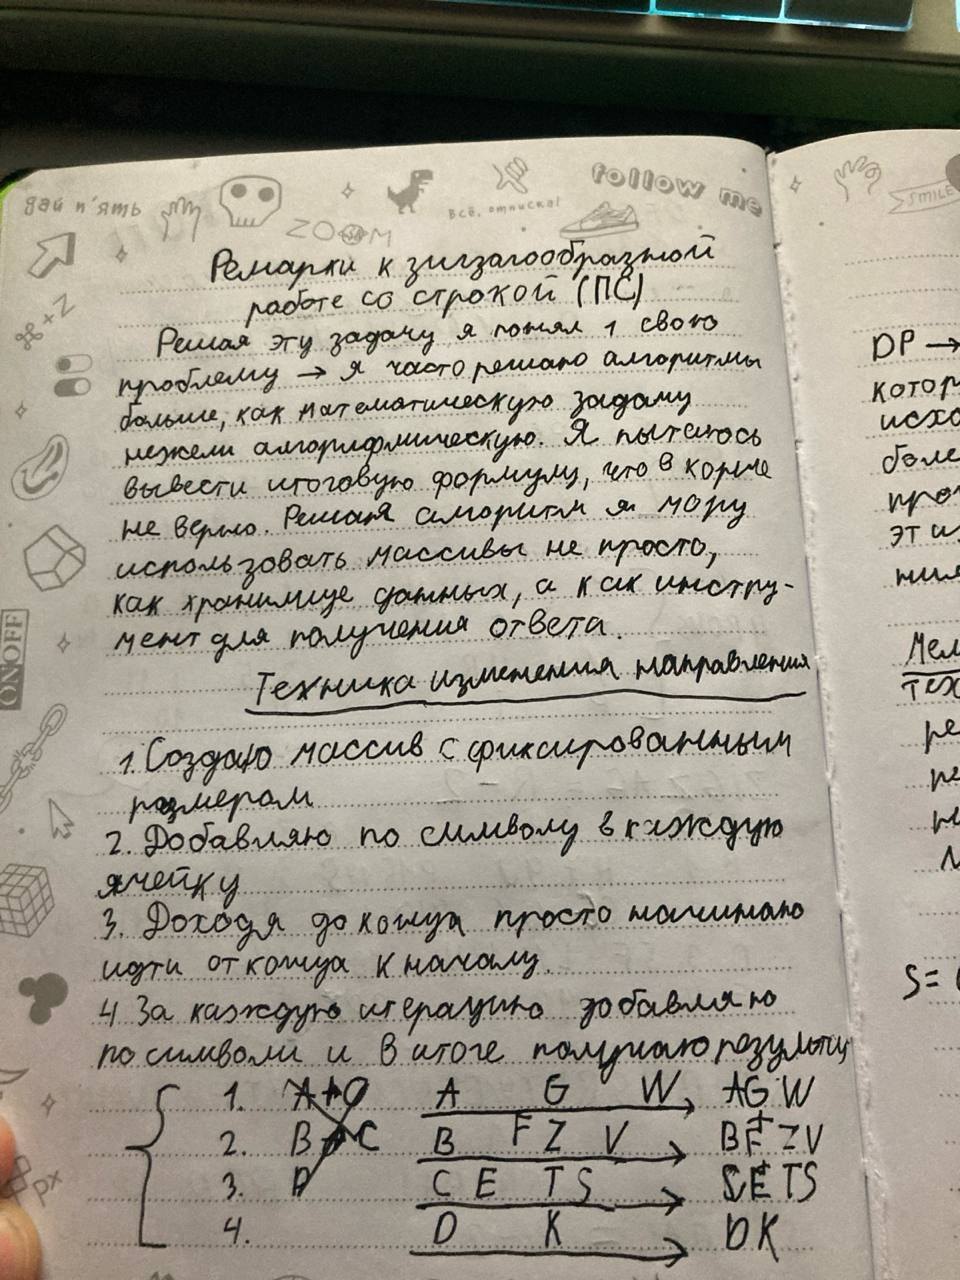 дай п'ять
ZOOM
Всё, отписка!
follow me
SMILE
Ремарки к зигзагообразной
работе со строкой (ПС)
Решая эту задачу я понял 1 свою
проблему → я часто решаю алгоритмы
больше, как математическую задачу
нежели алгорифмическую. Я пытаюсь
вывести итоговую формулу, что в корне
не верно. Решая алгоритм я могу
использовать массивы не просто,
как хранилище данных, а как инстру-
мент для получения ответа.
Техника изменения направления
1. Создаю массив с фиксированным
размером
2. Добавляю по символу в каждую
ячейку
3. Доходя до конца просто начинаю
идти от конца к началу.
4 За каждую итерацию добавляю
по символи и в итоге получаю результат
1. A G W AG W
2. B F Z V BF ZV
3. C E T S CE TS
4. D K DK
⌘+Z
ON OFF
px
DP →
котор
исхо
боле
про
эти
ния
Мем
тех
ре
ре
S=